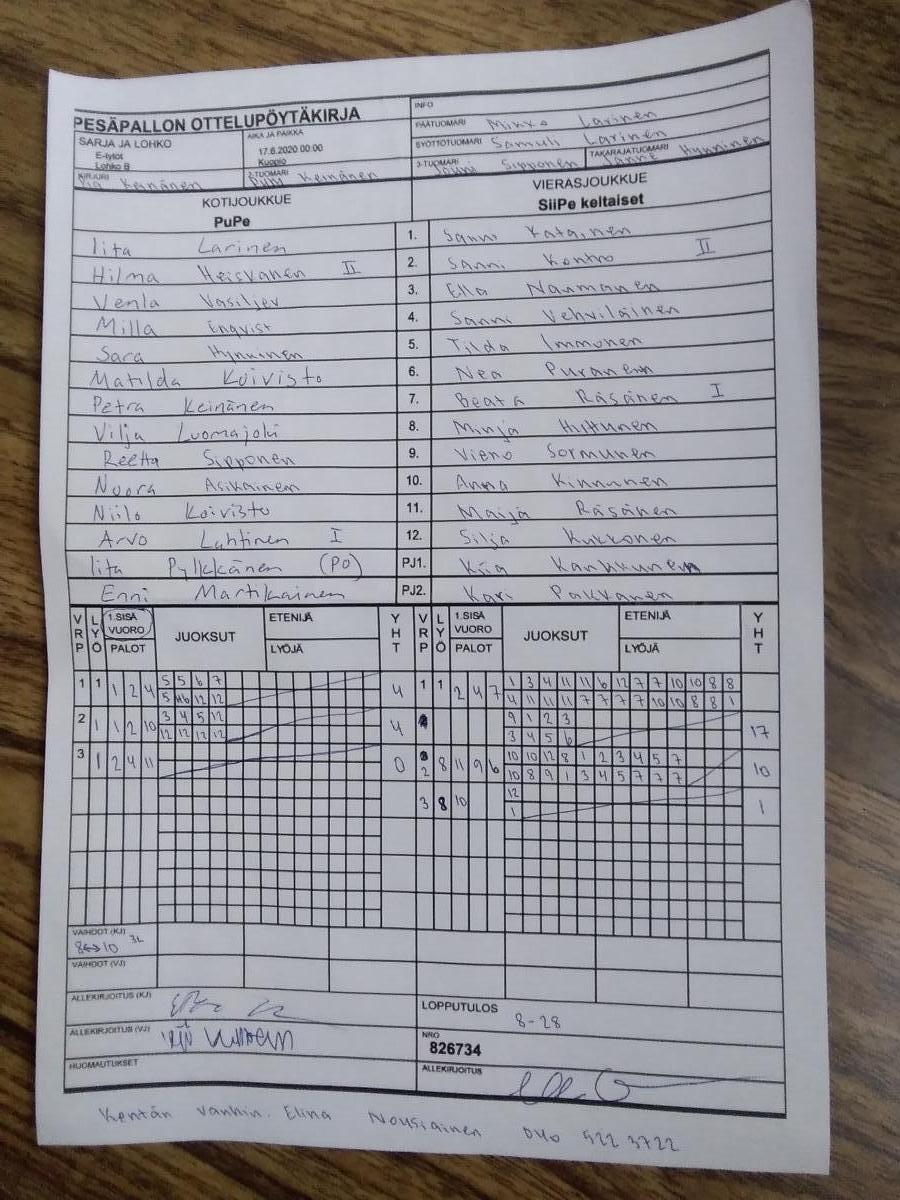 PESÄPALLON OTTELUPÖYTÄKIRJA
INFO
SARJA JA LOHKO
E-tytöt
Lohko B
AIKA JA PAIKKA
17.6.2020 00:00
Kuopio
PÄÄTUOMARI Mikko Larinen
SYÖTTÖTUOMARI Samuli Larinen
KIRJURI Keinänen
2-TUOMARI Keinänen
3-TUOMARI Jouni Sipponen
TAKARAJATUOMARI Janne Hynninen
KOTIJOUKKUE
PuPe
VIERASJOUKKUE
SiiPe keltaiset
Iita Larinen 1. Sanni Katainen
Hilma Heiskanen II 2. Sanni Kontro II
Venla Vasiljev 3. Ella Narmanen
Milla Enqvist 4. Sanni Vehviläinen
Sara Hynninen 5. Tilda Immonen
Matilda Koivisto 6. Nea Puranen
Petra Keinänen 7. Beata Räsänen I
Vilja Luomajoki 8. Minja Hyttunen
Reetta Sipponen 9. Vieno Sormunen
Noora Asikainen 10. Anna Kinnunen
Niilo Koivisto 11. Maija Räsänen
Arvo Lyhtinen I 12. Silja Kukkonen
Iita Pylkkänen (PO) PJ1. Kiia Kankkunen
Enni Martikainen PJ2. Kari Pakkanen
VRP LYÖ 1.SISÄ VUORO PALOT JUOKSUT ETENIJÄ LYÖJÄ YHT VRP LYÖ 1.SISÄ VUORO PALOT JUOKSUT ETENIJÄ LYÖJÄ YHT
1 1 1 2 4 5 5 6 7 4 1 1 2 4 7 1 3 4 11 11 6 12 7 7 10 10 8 8
5 12 12 4 11 11 11 11 7 7 7 10 10 8 8 1
2 1 1 2 10 3 4 5 12 4 9 1 2 3 17
12 12 12 12 3 4 5 6
3 1 2 4 11 0 2 8 11 9 6 10 10 12 8 1 2 3 4 5 7 10
10 8 9 1 3 4 5 7 7 7
3 8 10 12 1
1
VAIHDOT (KJ)
8↔10 3L
VAIHDOT (VJ)
ALLEKIRJOITUS (KJ)
ALLEKIRJOITUS (VJ)
HUOMAUTUKSET
LOPPUTULOS
8-28
NRO
826734
ALLEKIRJOITUS
Kentän vanhin. Elina Nousiainen 040 522 3722